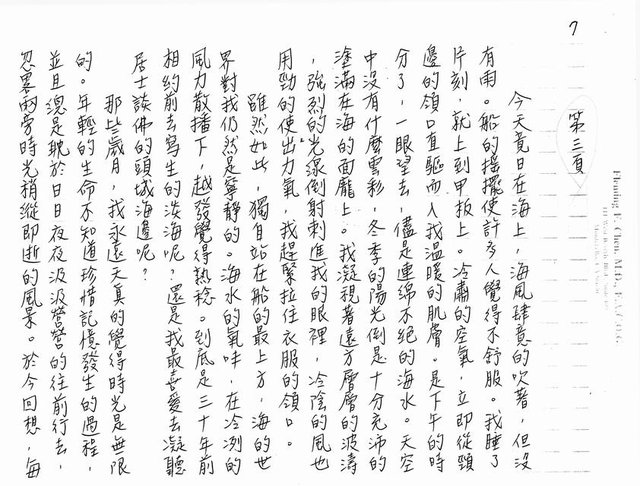 7
第三頁
今天竟日在海上,海風肆意的吹著,但沒
有雨。船的搖擺使許多人覺得不舒服。我睡了
片刻,就上到甲板上。冷肅的空氣,立即從頸
邊的領口直驅而入我溫暖的肌膚。是下午的時
分了,一眼望去,儘是連綿不絕的海水。天空
中沒有什麼雲彩,冬季的陽光倒是十分充沛的
塗滿在海的面龐上。我凝視著遠方層層的波濤
,強烈的光線倒射刺進我的眼裡,冷陰的風也
用勁的使出力氣,我趕緊拉住衣服的領口。
雖然如此,獨自站在船的最上方,海的世
界對我仍然是寧靜的。海水的氣味,在冷冽的
風力散播下,越發覺得熱稔。到底是三十年前
相約前去寫生的淡海呢?還是我最喜愛去凝聽
居士談佛的頭城海邊呢?
那些歲月,我永遠天真的覺得時光是無限
的。年輕的生命不知道珍惜記憶發生的過程,
並且總是耽於日日夜夜汲汲營營的往前行去,
忽畧兩旁時光稍縱即逝的風景。於今回想,每
Fleming F. Chen, M.D., F.A.C.O.G.